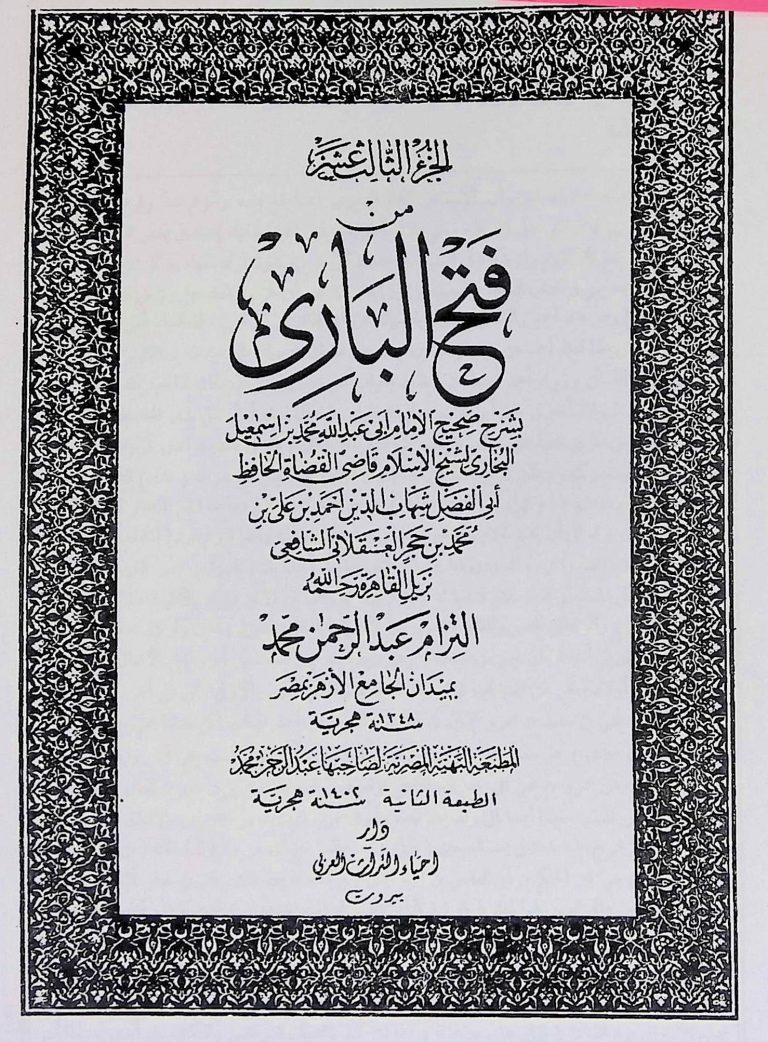 الجزء الثالث عشر
من
فتح الباري
بشرح صحيح الإمام أبي عبد الله محمد بن اسمعيل
البخاري لشيخ الإسلام قاضي القضاة الحافظ
أبي الفضل شهاب الدين أحمد بن علي بن
محمد بن حجر العسقلاني الشافعي
نزيل القاهرة رحمه الله
التزام عبد الرحمن محمد
بميدان الجامع الأزهر بمصر
سنة ١٣٤٨ هجرية
المطبعة البهية المصرية لصاحبها عبد الرحمن محمد
الطبعة الثانية سنة ١٤٠٢ هجرية
دار
احياء التراث العربي
بيروت